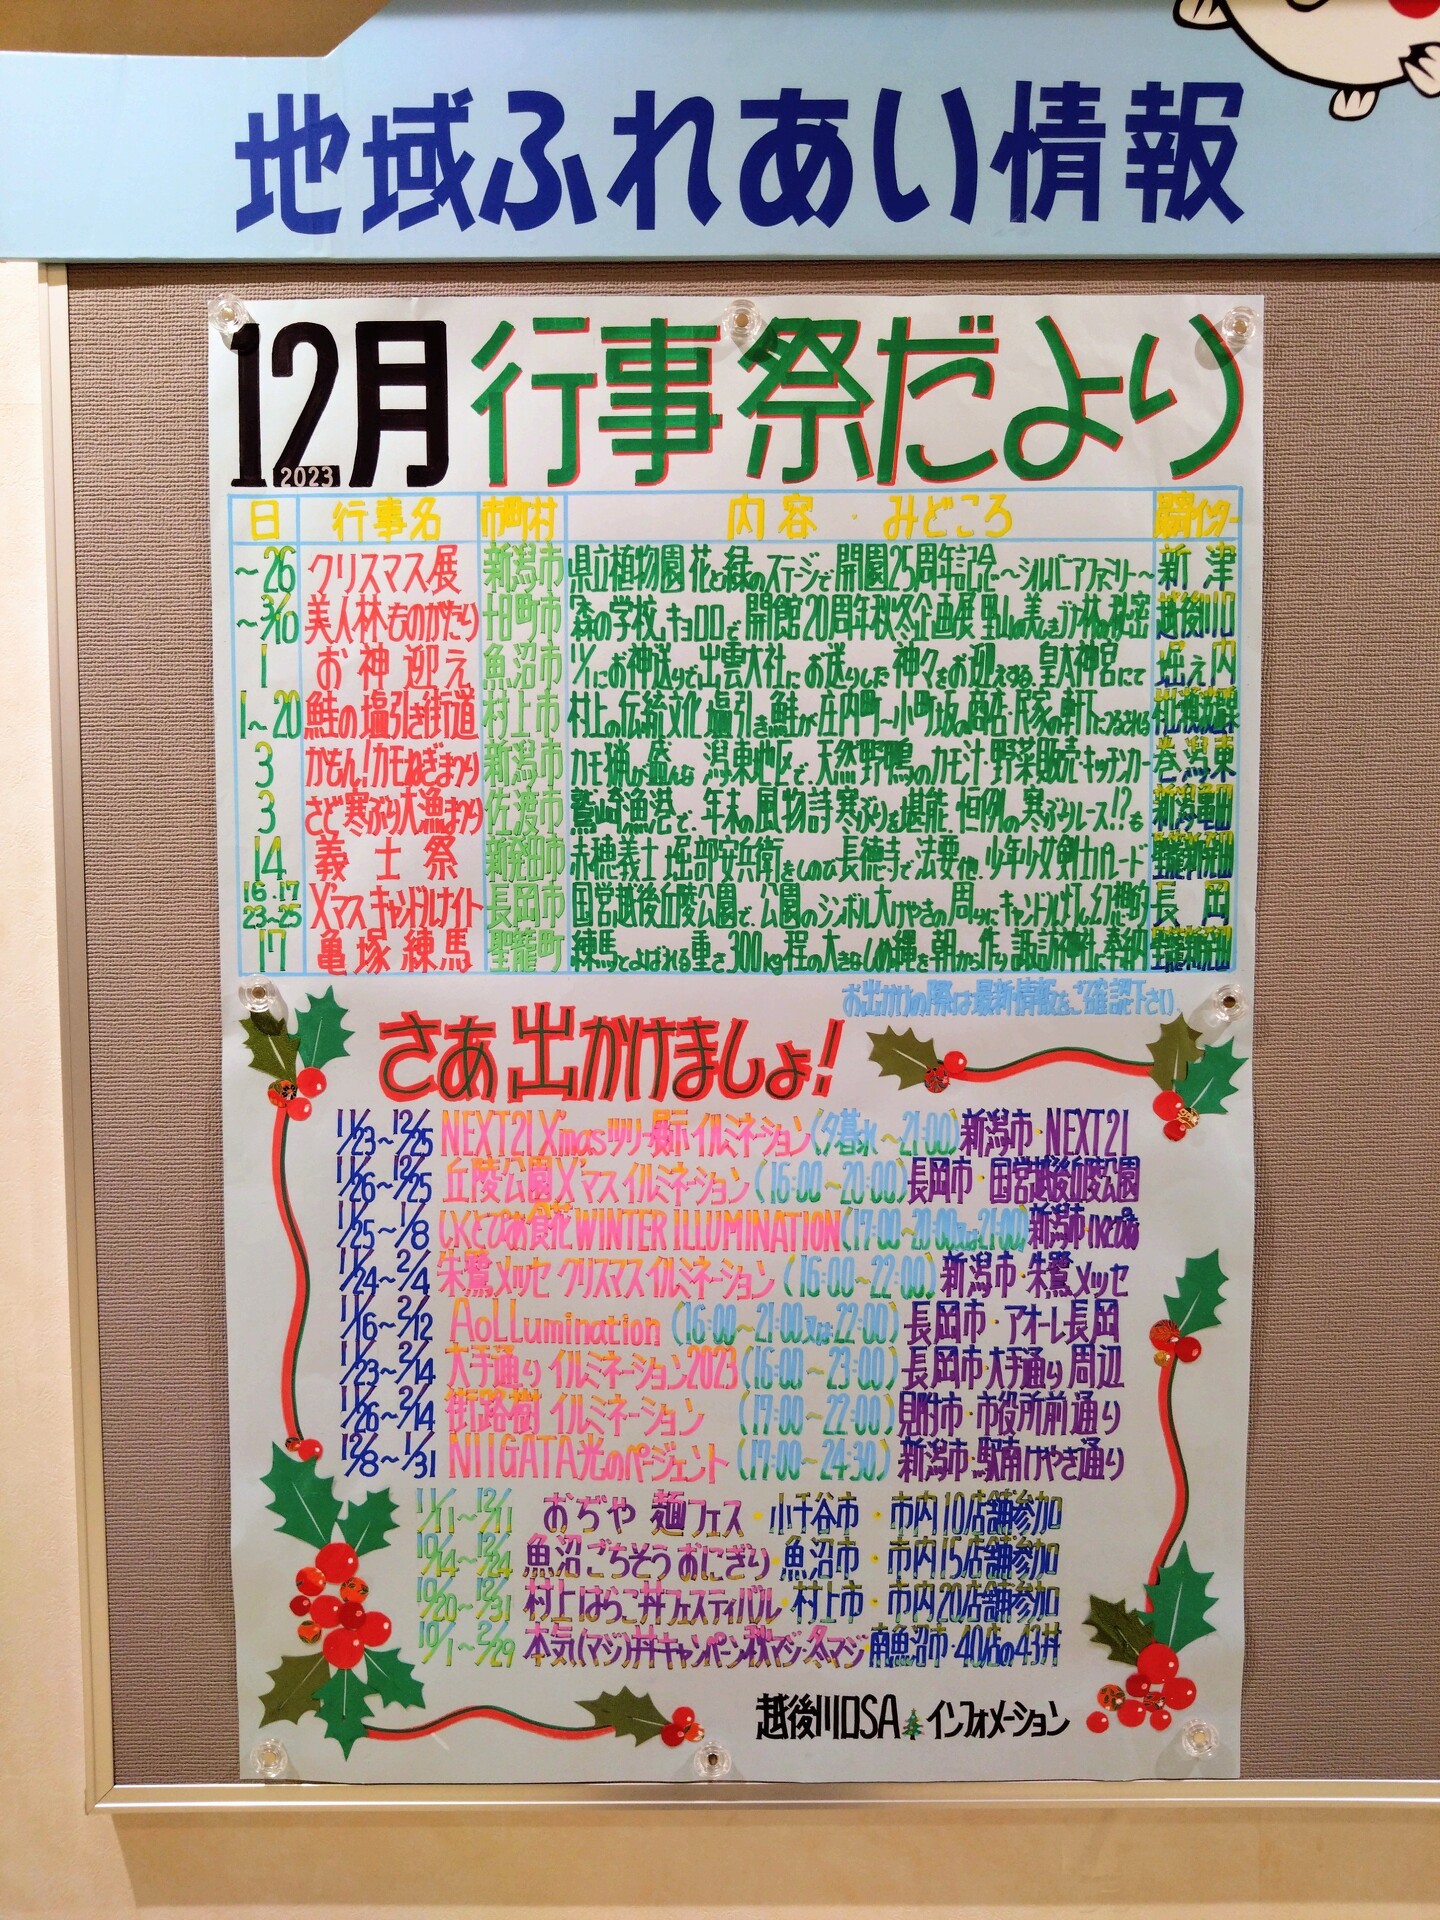 地域ふれあい情報
12月行事祭だより
2023
日 行事名 市町村 内容・みどころ 最寄インター
~26 クリスマス展 新潟市 県立植物園 花と緑のステージで開園25周年記念~シルバニアファミリー~ 新津
~3/10 美人林ものがたり 十日町市 「森の学校」キョロロで開館20周年秋冬企画展 里山の美しきブナ林の秘密 越後川口
1 お神迎え 魚沼市 11/1にお神送りで出雲大社にお送りした神々をお迎えする。皇大神宮にて 堀之内
1~20 鮭の塩引き街道 村上市 村上の伝統文化 塩引き鮭が庄内町~小町坂の商店・民家の軒下につるされる
3 かもん!カモねぎまつり 新潟市 カモ猟が盛んな潟東地区で、天然野鴨のカモ汁・野菜販売・キッチンカー 巻潟東
3 さど寒ぶり大漁まつり 佐渡市 鷲崎漁港で、年末の風物詩寒ぶりを堪能 恒例の寒ぶりレース!?も 新潟亀田
14 義士祭 新発田市 赤穂義士 堀部安兵衛をしのび長徳寺で法要他。少年少女剣士パレード 聖籠新発田
16・17 23~25 X'マスキャンドルナイト 長岡市 国営越後丘陵公園で、公園のシンボル大けやきの周りにキャンドル灯し幻想的 長岡
17 亀塚練馬 聖籠町 練馬とよばれる重さ300kg程の大きなしめ縄を朝から作り諏訪神社に奉納 聖籠新発田
お出かけの際は最新情報をご確認下さい。
さあ出かけましょ!
11/23~12/25 NEXT21X'masツリー展示イルミネーション(夕暮れ~21:00)新潟市・NEXT21
11/26~12/25 丘陵公園X'マスイルミネーション(16:00~20:00)長岡市・国営越後丘陵公園
11/25~1/8 いくとぴあ食花WINTER ILLUMINATION(17:00~20:00又は21:00)新潟市・いくとぴあ
11/24~2/4 朱鷺メッセ クリスマスイルミネーション(16:00~22:00)新潟市・朱鷺メッセ
11/16~2/12 AoLLumination(16:00~21:00又は22:00)長岡市・アオーレ長岡
11/23~2/14 大手通りイルミネーション2023(16:00~23:00)長岡市・大手通り周辺
11/26~2/14 街路樹イルミネーション(17:00~22:00)見附市・市役所前通り
12/8~1/31 NIIGATA光のページェント(17:00~24:30)新潟市・駅南けやき通り
11/11~12/11 おぢや 麺フェス・小千谷市・市内10店舗参加
10/14~12/24 魚沼ごちそうおにぎり・魚沼市・市内15店舗参加
10/20~12/31 村上はらこ丼フェスティバル・村上市・市内20店舗参加
10/1~2/29 本気(マジ)丼キャンペーン秋マジ・冬マジ 南魚沼市・40店の43丼
越後川口SA インフォメーション